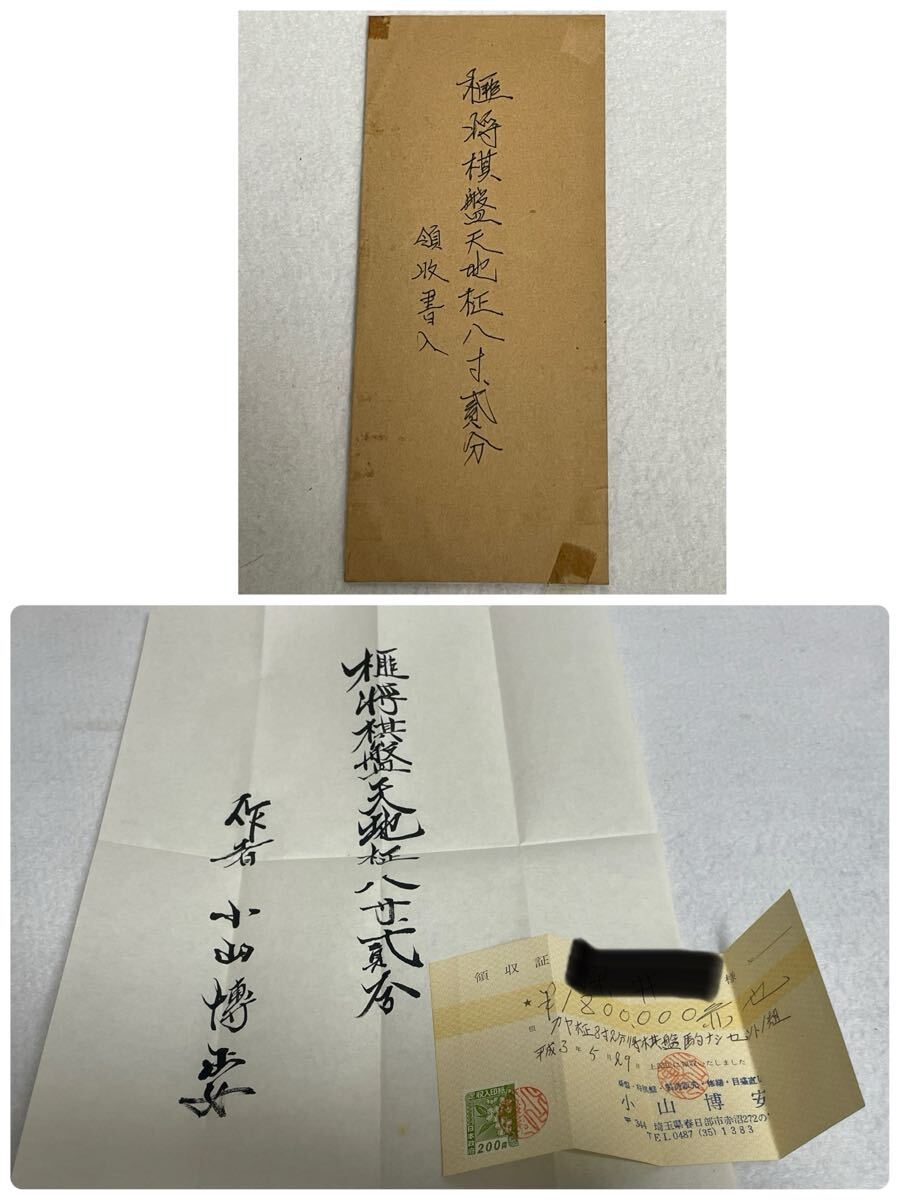 榧将棋盤天地柾八寸貳分
領收書入
榧将棋盤天地柾八寸貳分
作者 小山博安
領収証
様 №
★ ¥1,800,000
但 カヤ柾8寸2分将棋盤
平成3年5月29日 上記正に領収いたしました
小山博安
〒344 埼玉県春日部市赤沼272の
TEL 0487 (35) 1383
収入印紙
日本政府
200円